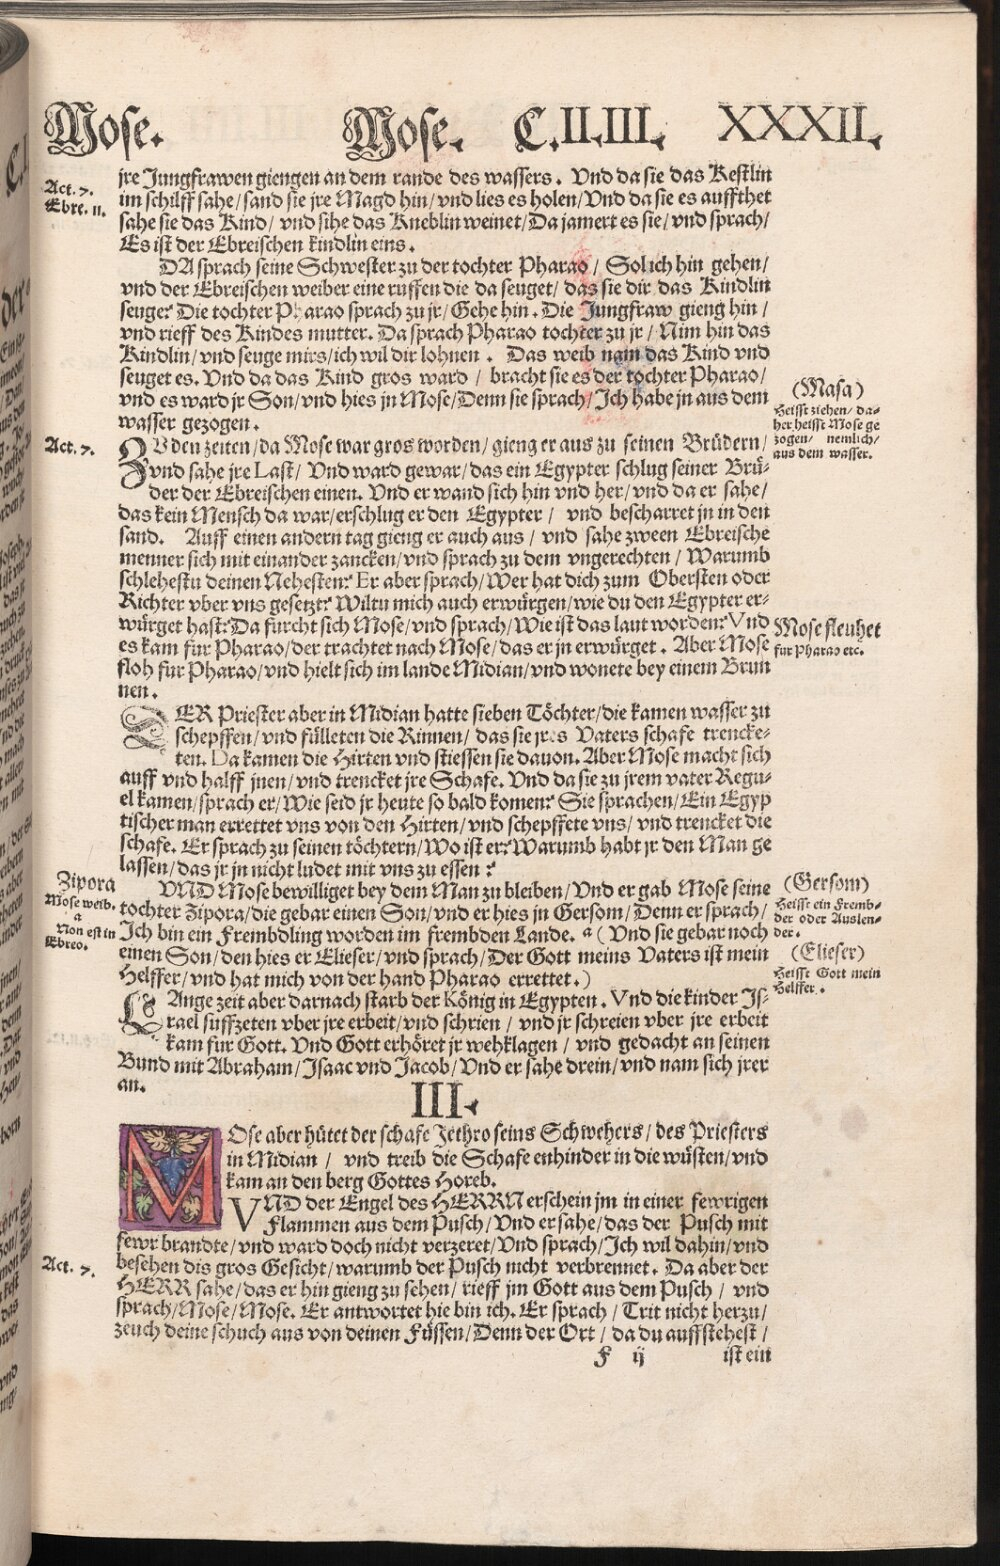 Mose. Mose. C.II.III. XXXII.
Act. 7.
Ebre. 11.
jre Jungfrawen giengen an dem rande des wassers. Vnd da sie das Kestlin
im schilff sahe/ sand sie jre Magd hin/ vnd lies es holen/ Vnd da sie es auffthet
sahe sie das Kind/ vnd sihe das Kneblin weinet/ Da jamert es sie/ vnd sprach/
Es ist der Ebreischen kindlin eins.
DA sprach seine Schwester zu der tochter Pharao/ Sol ich hin gehen/
vnd der Ebreischen weiber eine ruffen die da seuget/ das sie dir das Kindlin
seuge? Die tochter Pharao sprach zu jr/ Gehe hin. Die Jungfraw gieng hin/
vnd rieff des Kindes mutter. Da sprach Pharao tochter zu jr/ Nim hin das
Kindlin/ vnd seuge mirs/ ich wil dir lohnen. Das weib nam das Kind vnd
seuget es. Vnd da das Kind gros ward/ bracht sie es der tochter Pharao/
vnd es ward jr Son/ vnd hies jn Mose/ Denn sie sprach/ Ich habe jn aus dem
wasser gezogen.
(Masa)
Heisst ziehen/ da-
her heisst Mose ge
zogen/ nemlich/
aus dem wasser.
Act. 7.
ZV den zeiten/ da Mose war gros worden/ gieng er aus zu seinen Brüdern/
vnd sahe jre Last/ Vnd ward gewar/ das ein Egypter schlug seiner Brü-
der der Ebreischen einen. Vnd er wand sich hin vnd her/ vnd da er sahe/
das kein Mensch da war/ erschlug er den Egypter/ vnd bescharret jn in den
sand. Auff einen andern tag gieng er auch aus/ vnd sahe zween Ebreische
menner sich mit einander zancken/ vnd sprach zu dem vngerechten/ Warumb
schlehestu deinen Nehesten? Er aber sprach/ Wer hat dich zum Obersten oder
Richter vber vns gesetzt? Wiltu mich auch erwürgen/ wie du den Egypter er-
würget hast? Da furcht sich Mose/ vnd sprach/ Wie ist das laut worden? Vnd
es kam fur Pharao/ der trachtet nach Mose/ das er jn erwürget. Aber Mose
floh fur Pharao/ vnd hielt sich im lande Midian/ vnd wonete bey einem Brun
nen.
Mose fleuhet
fur Pharao etc.
DER Priester aber in Midian hatte sieben Töchter/ die kamen wasser zu
schepffen/ vnd fülleten die Rinnen/ das sie jres Vaters schafe trencke-
ten. Da kamen die Hirten vnd stiessen sie dauon. Aber Mose macht sich
auff vnd halff jnen/ vnd trencket jre Schafe. Vnd da sie zu jrem vater Regu-
el kamen/ sprach er/ Wie seid jr heute so bald komen? Sie sprachen/ Ein Egyp
tischer man errettet vns von den Hirten/ vnd schepffete vns/ vnd trencket die
schafe. Er sprach zu seinen töchtern/ Wo ist er? Warumb habt jr den Man ge
lassen/ das jr jn nicht ludet mit vns zu essen?
Zipora
Mose weib.
a
Non est in
Ebreo.
VND Mose bewilliget bey dem Man zu bleiben/ Vnd er gab Mose seine
tochter Zipora/ die gebar einen Son/ vnd er hies jn Gersom/ Denn er sprach/
Ich bin ein Frembdling worden im frembden Lande. a (Vnd sie gebar noch
einen Son/ den hies er Elieser/ vnd sprach/ Der Gott meins Vaters ist mein
Helffer/ vnd hat mich von der hand Pharao errettet.)
(Gersom)
Heisst ein Fremb-
der oder Auslen-
der.
(Elieser)
Heisst Gott mein
Helffer.
LAnge zeit aber darnach starb der König in Egypten. Vnd die kinder Js-
rael süffzeten vber jre erbeit/ vnd schrien/ vnd jr schreien vber jre erbeit
kam fur Gott. Vnd Gott erhöret jr wehklagen/ vnd gedacht an seinen
Bund mit Abraham/ Jsaac vnd Jacob/ Vnd er sahe drein/ vnd nam sich jrer
an.
III.
MOse aber hütet der schafe Jethro seins Schwehers/ des Priesters
in Midian/ vnd treib die Schafe enhinder in die wüsten/ vnd
kam an den berg Gottes Horeb.
VND der Engel des HERRN erschein jm in einer fewrigen
Flammen aus dem Pusch/ Vnd er sahe/ das der Pusch mit
fewr brandte/ vnd ward doch nicht verzeret/ Vnd sprach/ Ich wil dahin/ vnd
besehen dis gros Gesicht/ warumb der Pusch nicht verbrennet. Da aber der
HERR sahe/ das er hin gieng zu sehen/ rieff jm Gott aus dem Pusch/ vnd
sprach/ Mose/ Mose. Er antwortet hie bin ich. Er sprach/ Trit nicht herzu/
zeuch deine schuch aus von deinen Füssen/ Denn der Ort/ da du auff stehest/
Act. 7.
F ij ist ein